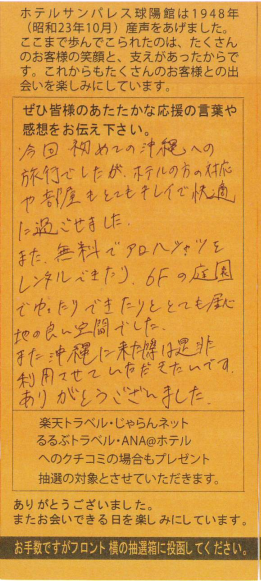 ホテルサンパレス球陽館は1948年
(昭和23年10月)産声をあげました。
ここまで歩んでこられたのは、たくさん
のお客様の笑顔と、支えがあったからで
す。これからもたくさんのお客様との出
会いを楽しみにしています。
ぜひ皆様のあたたかな応援の言葉や
感想をお伝え下さい。
今回 初めての沖縄への
旅行でしたが、ホテルの方の対応
や部屋もとてもキレイで快適
に過ごせました。
また、無料でアロハシャツを
レンタルできたり、6Fの庭園
でゆったりできたりととても居心
地の良い空間でした。
また沖縄に来た際は是非
利用させていただきたいです。
ありがとうございました。
楽天トラベル・じゃらんネット
るるぶトラベル・ANA@ホテル
へのクチコミの場合もプレゼント
抽選の対象とさせていただきます。
ありがとうございました。
またお会いできる日を楽しみにしています。
お手数ですがフロント横の抽選箱に投函してください。